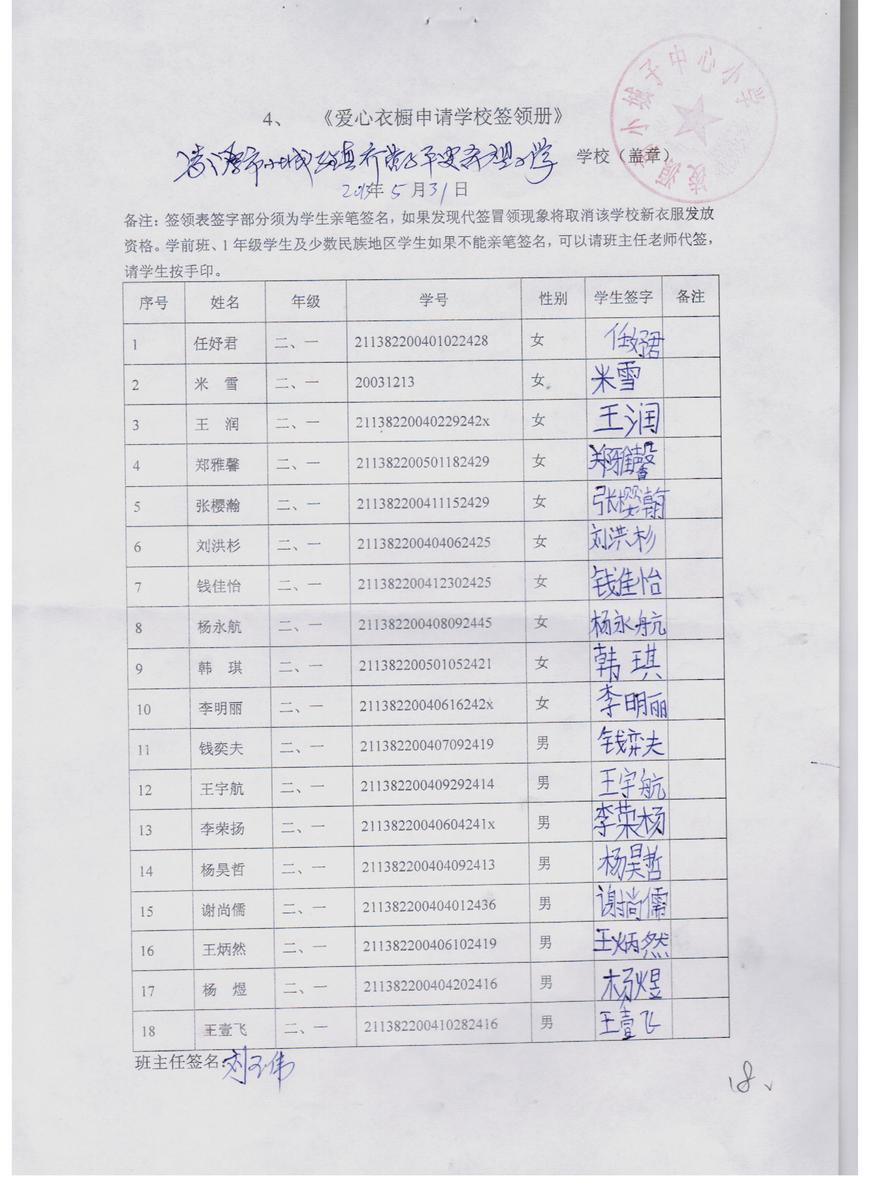 小城子中心小学
凌源
4、 《爱心衣橱申请学校签领册》
凌源市小城子镇 希望小学 学校（盖章）
2013年5月31日
备注：签领表签字部分须为学生亲笔签名，如果发现代签冒领现象将取消该学校新衣服发放
资格。学前班、1年级学生及少数民族地区学生如果不能亲笔签名，可以请班主任老师代签，
请学生按手印。
序号 姓名 年级 学号 性别 学生签字 备注
1 任妤君 二、一 211382200401022428 女 任妤君
2 米 雪 二、一 20031213 女 米雪
3 王 润 二、一 21138220040229242x 女 王润
4 郑雅馨 二、一 211382200501182429 女 郑雅馨
5 张樱瀚 二、一 211382200411152429 女 张樱瀚
6 刘洪杉 二、一 211382200404062425 女 刘洪杉
7 钱佳怡 二、一 211382200412302425 女 钱佳怡
8 杨永航 二、一 211382200408092445 女 杨永航
9 韩 琪 二、一 211382200501052421 女 韩琪
10 李明丽 二、一 21138220040616242x 女 李明丽
11 钱奕夫 二、一 211382200407092419 男 钱奕夫
12 王宇航 二、一 211382200409292414 男 王宇航
13 李荣扬 二、一 21138220040604241x 男 李荣杨
14 杨昊哲 二、一 211382200404092413 男 杨昊哲
15 谢尚儒 二、一 211382200404012436 男 谢尚儒
16 王炳然 二、一 211382200406102419 男 王炳然
17 杨 煜 二、一 211382200404202416 男 杨煜
18 王壹飞 二、一 211382200410282416 男 王壹飞
班主任签名：刘玉伟
18、